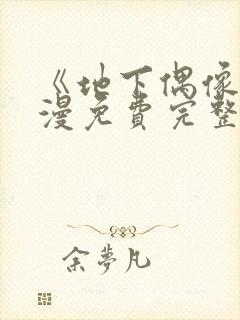 《地下偶像
漫免費完整
余夢凡